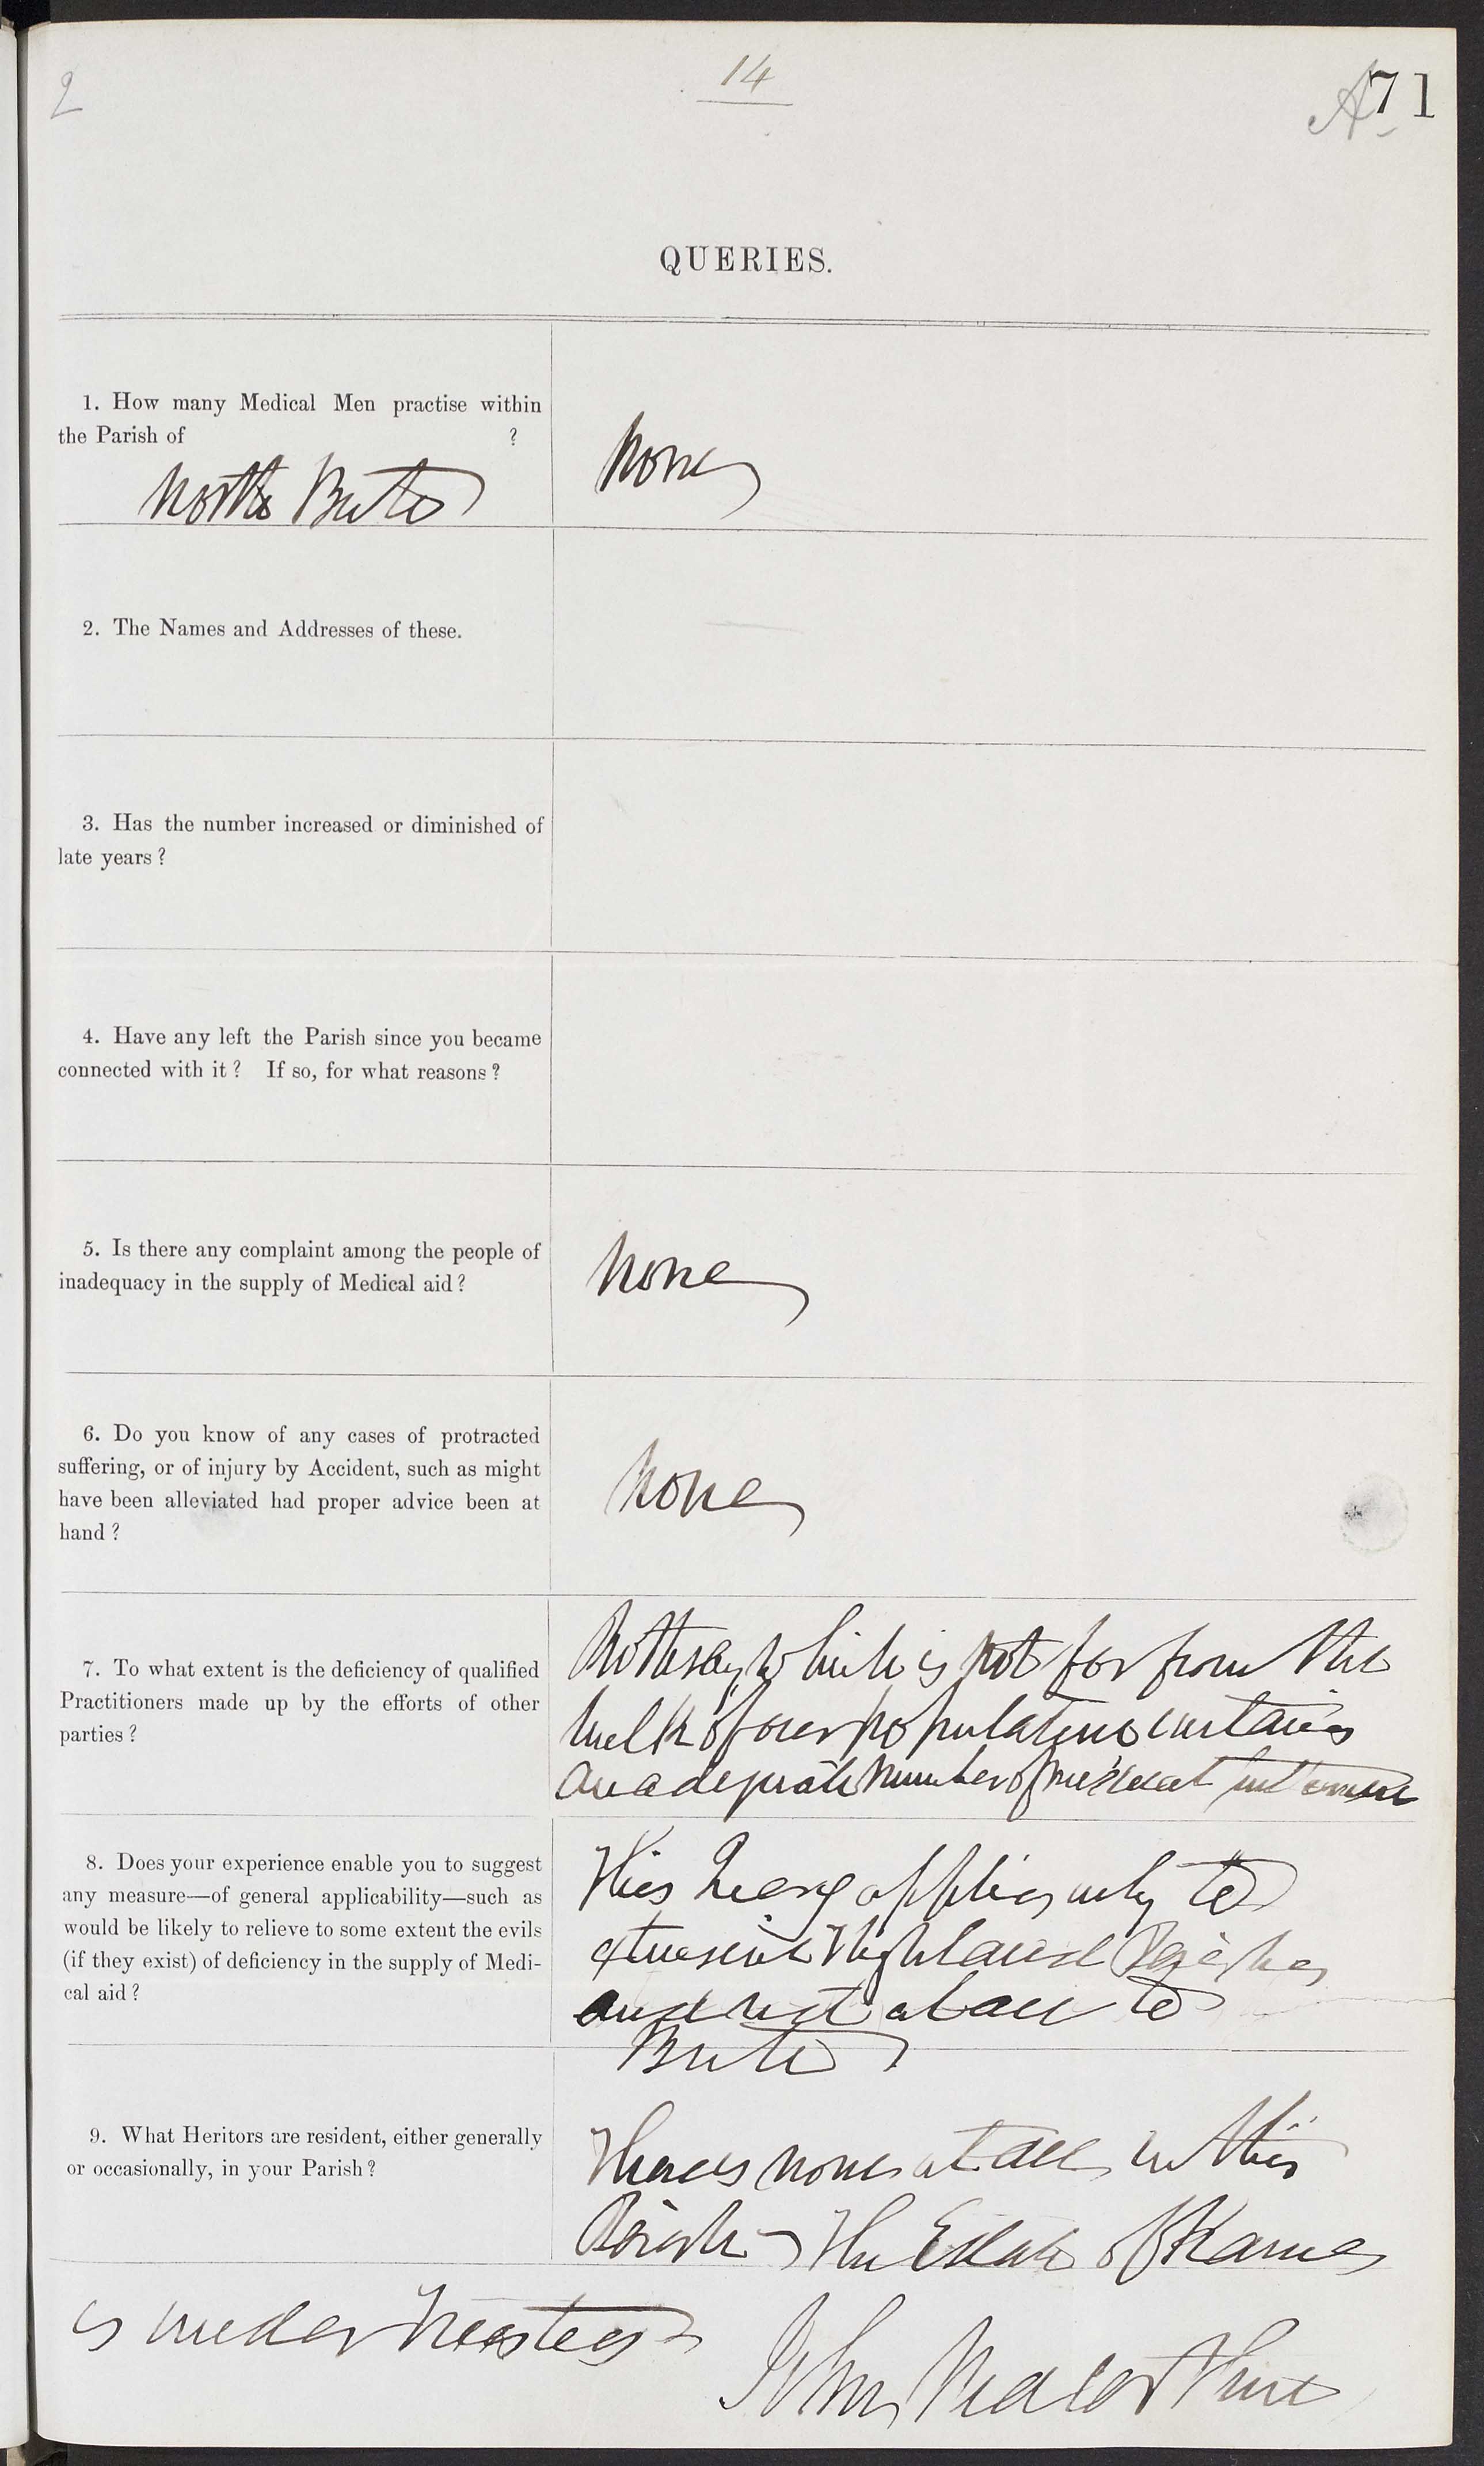 2
14
A 71
QUERIES.
1. How many Medical Men practise within
the Parish of ?
North Bute
None
2. The Names and Addresses of these.
3. Has the number increased or diminished of
late years ?
4. Have any left the Parish since you became
connected with it ? If so, for what reasons ?
5. Is there any complaint among the people of
inadequacy in the supply of Medical aid ?
None
6. Do you know of any cases of protracted
suffering, or of injury by Accident, such as might
have been alleviated had proper advice been at
hand ?
None
7. To what extent is the deficiency of qualified
Practitioners made up by the efforts of other
parties ?
Rothesay which is not far from the
bulk of our population contains
an adequate number of medical
8. Does your experience enable you to suggest
any measure—of general applicability—such as
would be likely to relieve to some extent the evils
(if they exist) of deficiency in the supply of Medi-
cal aid ?
This Query applies only to
extensive Highland Parishes
and not at all to
Bute
9. What Heritors are resident, either generally
or occasionally, in your Parish ?
There is none at all in this
Parish – The Estate of Kames
is under Trustees
John Macarthur